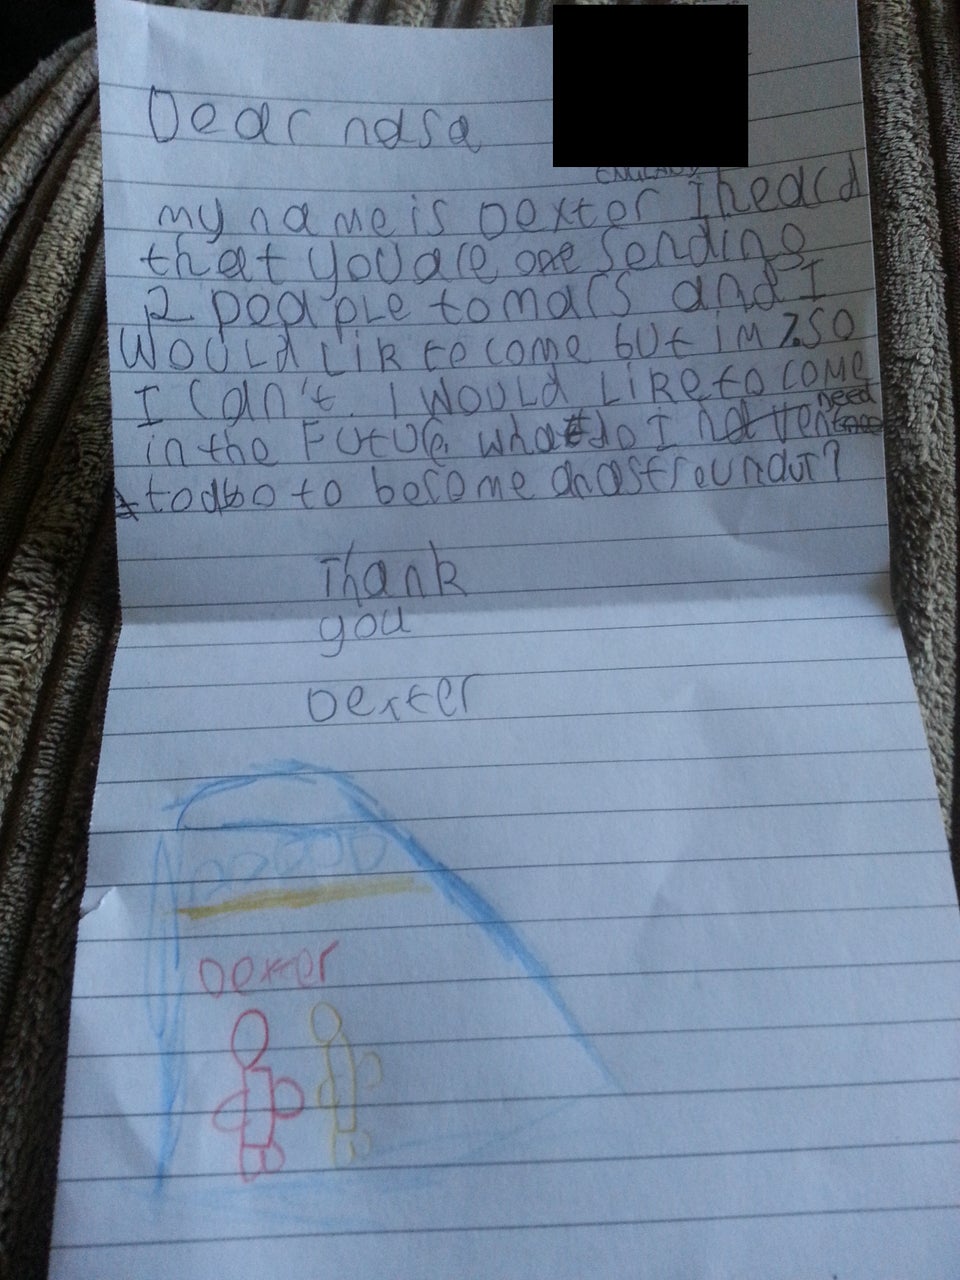 Dear nasa
ENGLAND
my name is Dexter I heard
that you are one sending
2 peaple to mars and I
would lik to come but im 7.So
I can't. I would like to come
in the Future. what do I need
to do to become an astroundut?
Thank
you
Dexter
Dexter